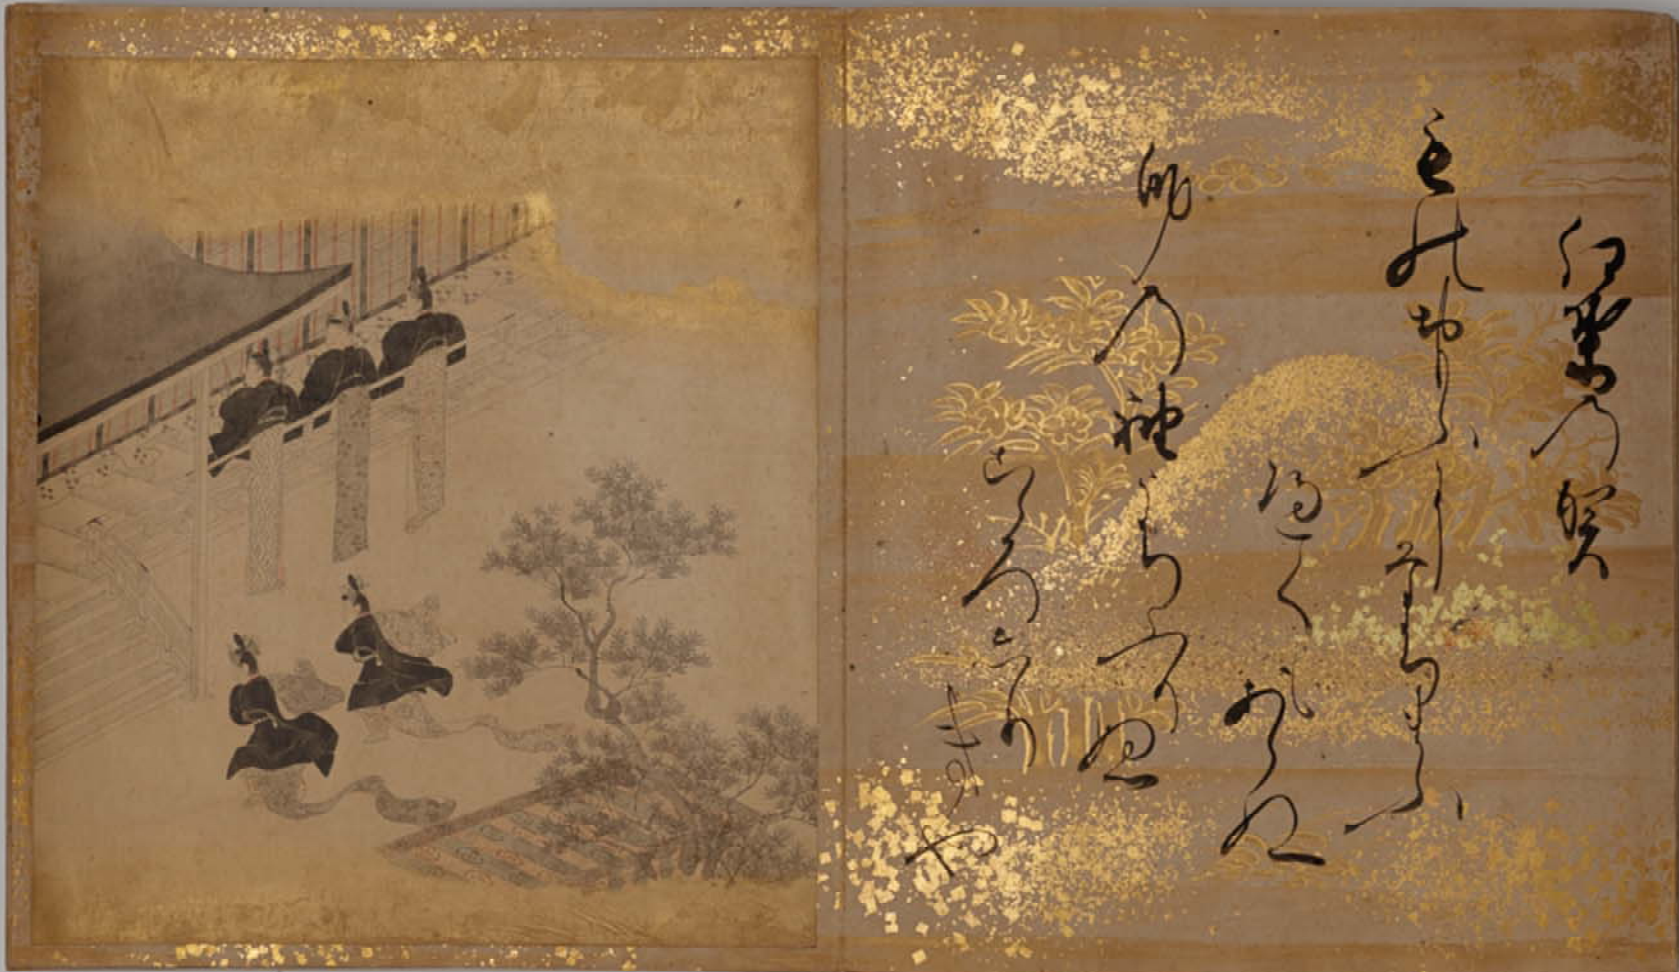 紅葉乃賀
も能おもふに立まふ
遍くもあらぬ
身乃袖うちふりし
こゝろしり
きや